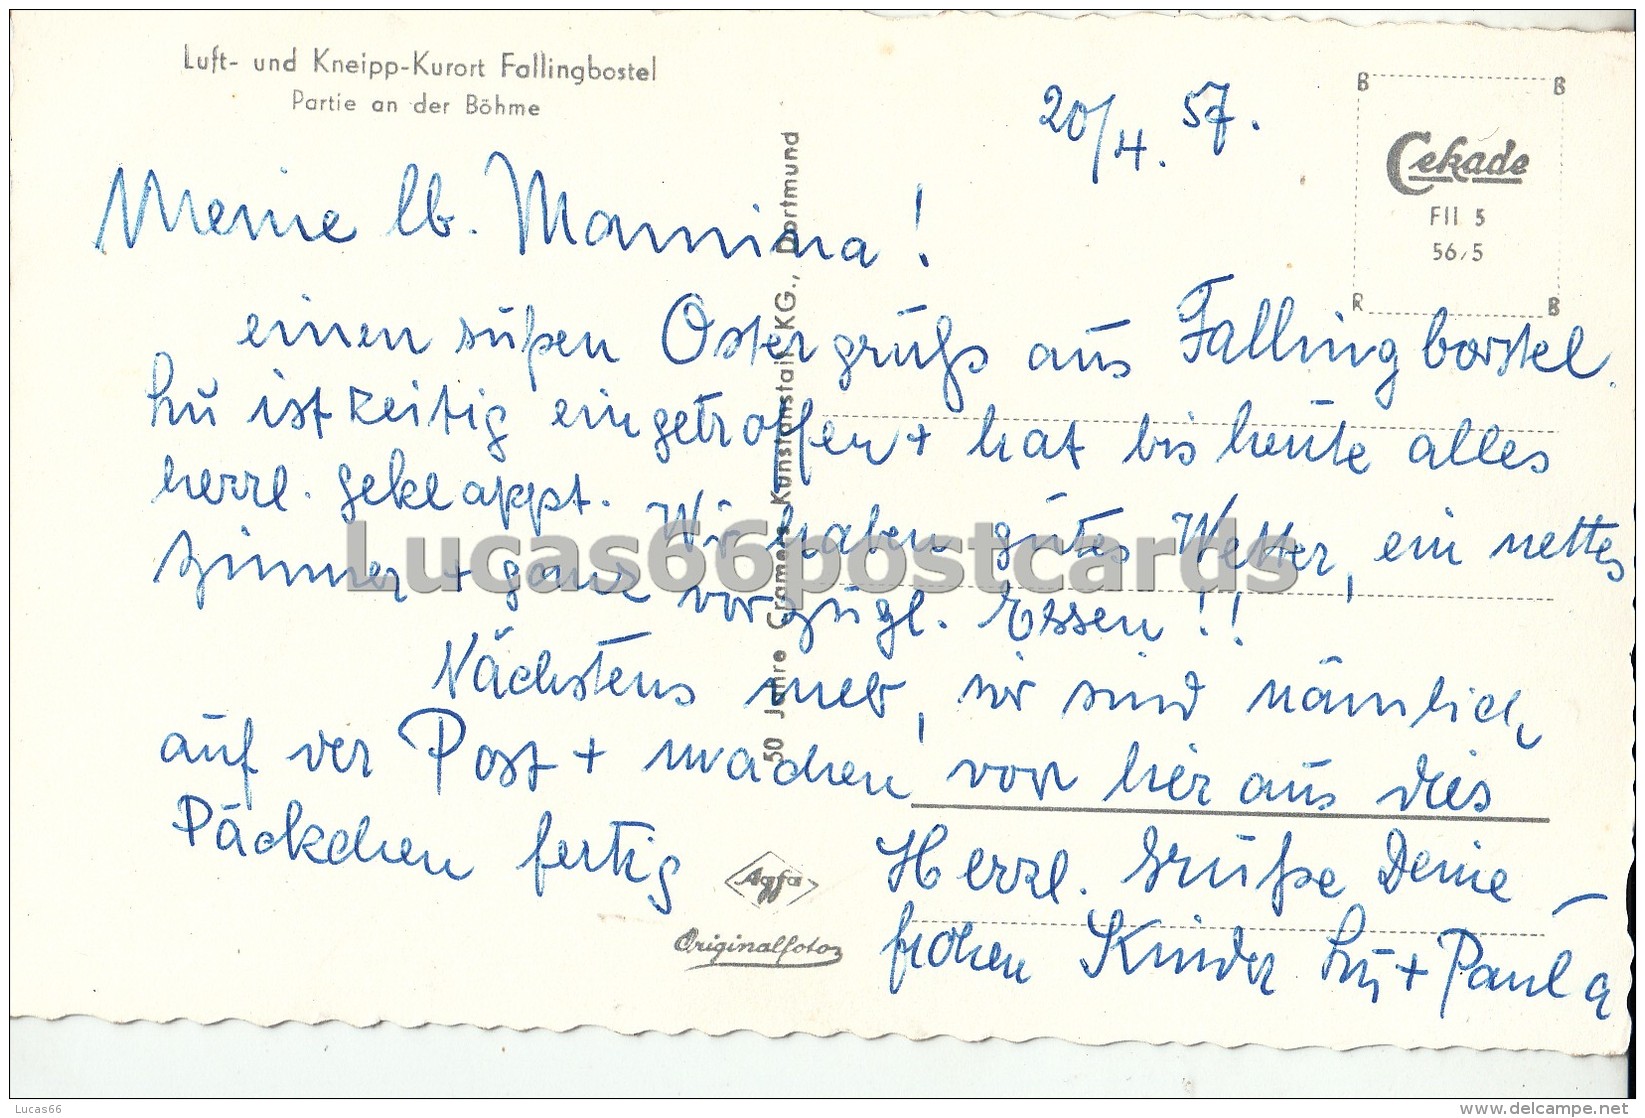 Luft- und Kneipp-Kurort Fallingbostel
Partie an der Böhme
20/4. 57.
Cekade
FII 5
56/5
B
B
R
B
Meine lb. Mamina!
einen süßen Ostergruß aus Fallingbostel.
Lu ist zeitig eingetroffen + hat bis heute alles
herrl. geklappt. Wir haben gutes Wetter, ein nettes
Zimmer + ganz vorzügl. Essen!!
Nächstens mehr, wir sind nämlich
auf der Post + machen von hier aus dies
Päckchen fertig
Herzl. Grüße Deine
frohen Kinder Lu + Paula
50 Jahre Cramers Kunstanstalt KG., Dortmund
Agfa
Originalfoto
Lucas66postcards
Lucas66
www.delcampe.net